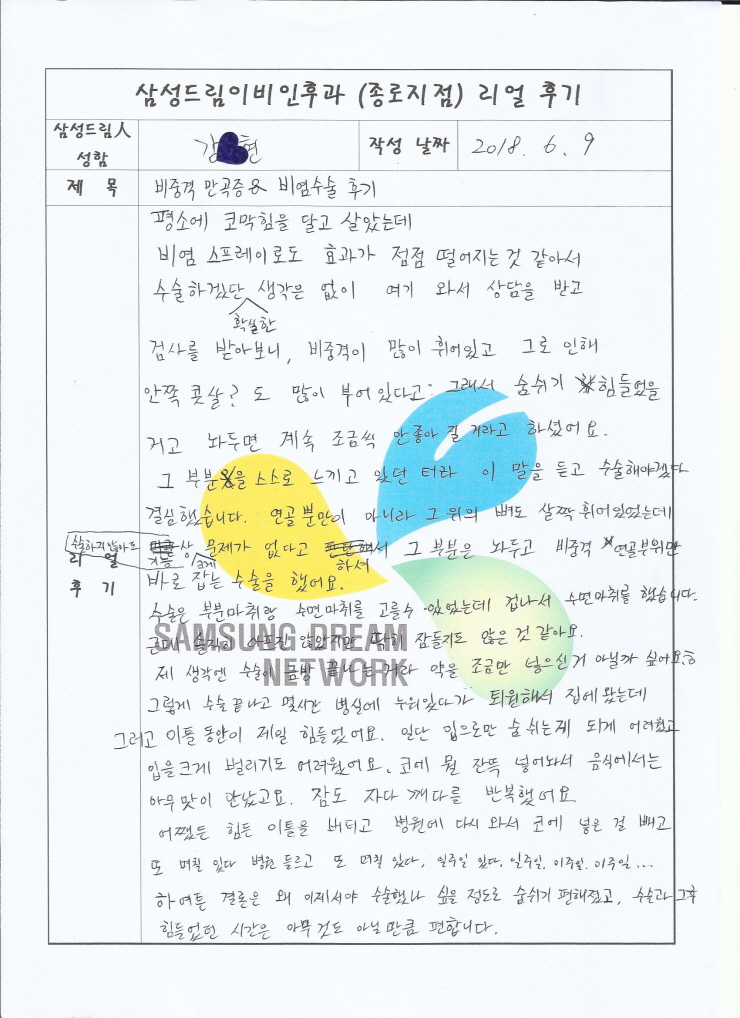 삼성드림이비인후과 (종로지점) 리얼 후기
삼성드림人
성함
강 현
작성 날짜
2018. 6. 9
제 목
비중격 만곡증 & 비염수술 후기
리 얼
후 기
평소에 코막힘을 달고 살았는데
비염 스프레이로도 효과가 점점 떨어지는것 같아서
수술하겠단 생각은 없이 여기 와서 상담을 받고
확실한
검사를 받아보니, 비중격이 많이 휘어있고 그로 인해
안쪽 콧살? 도 많이 부어있다고.. 그래서 숨쉬기 힘들었을
거고 놔두면 계속 조금씩 안좋아 질 거라고 하셨어요.
그 부분을 스스로 느끼고 있던 터라 이 말을 듣고 수술해야겠다
결심했습니다. 연골뿐만이 아니라 그 위의 뼈도 살짝 휘어있었는데
수술하지않아도
기능상 문제가 없다고 하셔서 그 부분은 놔두고 비중격 연골부위만
크게
바로 잡는 수술을 했어요.
수술은 부분마취랑 수면마취를 고를수 있었는데 겁나서 수면마취를 했습니다.
근데 솔직히 아프진 않았지만 딱히 잠들지도 않은 것 같아요.
SAMSUNG DREAM
NETWORK
제 생각엔 수술이 금방 끝나는거라 약을 조금만 넣으신거 아닐까 싶어요ㅎ
그렇게 수술 끝나고 몇시간 병실에 누워있다가 퇴원해서 집에 왔는데
그리고 이틀 동안이 제일 힘들었어요. 일단 입으로만 숨 쉬는게 되게 어려웠고
입을 크게 벌리기도 어려웠어요. 코에 뭘 잔뜩 넣어놔서 음식에서는
아무 맛이 안났고요. 잠도 자다 깨다를 반복했어요
어쨌든 힘든 이틀을 버티고 병원에 다시 와서 코에 넣은 걸 빼고
또 며칠 있다 병원 들르고 또 며칠 있다, 일주일 있다, 일주일, 이주일, 이주일...
하여튼 결론은 왜 이제서야 수술했나 싶을 정도로 숨쉬기 편해졌고, 수술과 그후
힘들었던 시간은 아무것도 아닐만큼 편합니다.